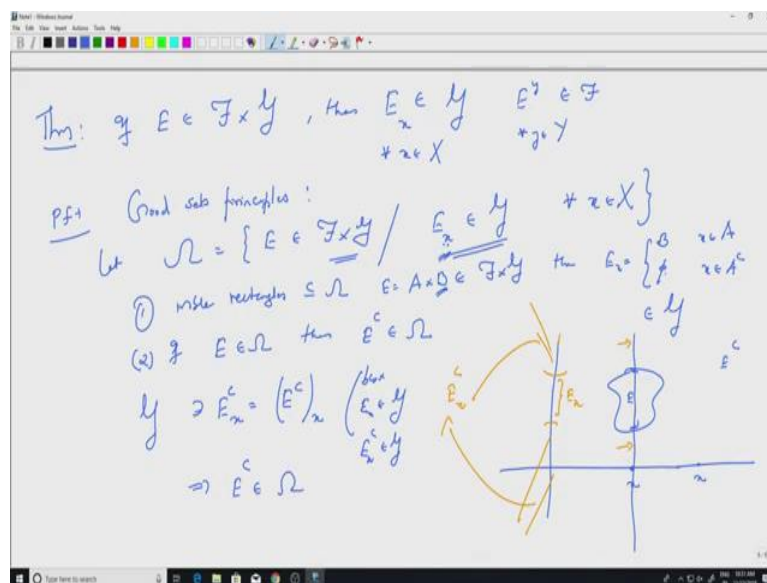 Note1 - Windows Journal
File Edit View Insert Actions Tools Help
Thm: If E ∈ F × Y, then E_x ∈ Y E^y ∈ F
∀ x ∈ X ∀ y ∈ Y
Pf: Good sets principles:
Let Ω = { E ∈ F × Y / E_x ∈ Y ∀ x ∈ X }
① mble rectangles ⊆ Ω E = A × B ∈ F × Y then E_x = { B x ∈ A
φ x ∈ A^c
∈ Y
(2) If E ∈ Ω then E^c ∈ Ω
Y ∋ E_x^c = (E^c)_x ( E_x ∈ Y
E_x^c ∈ Y
⇒ E^c ∈ Ω
E_x^c
} E_x
E
E^c
x
x
Type here to search
ENG 10:31 AM